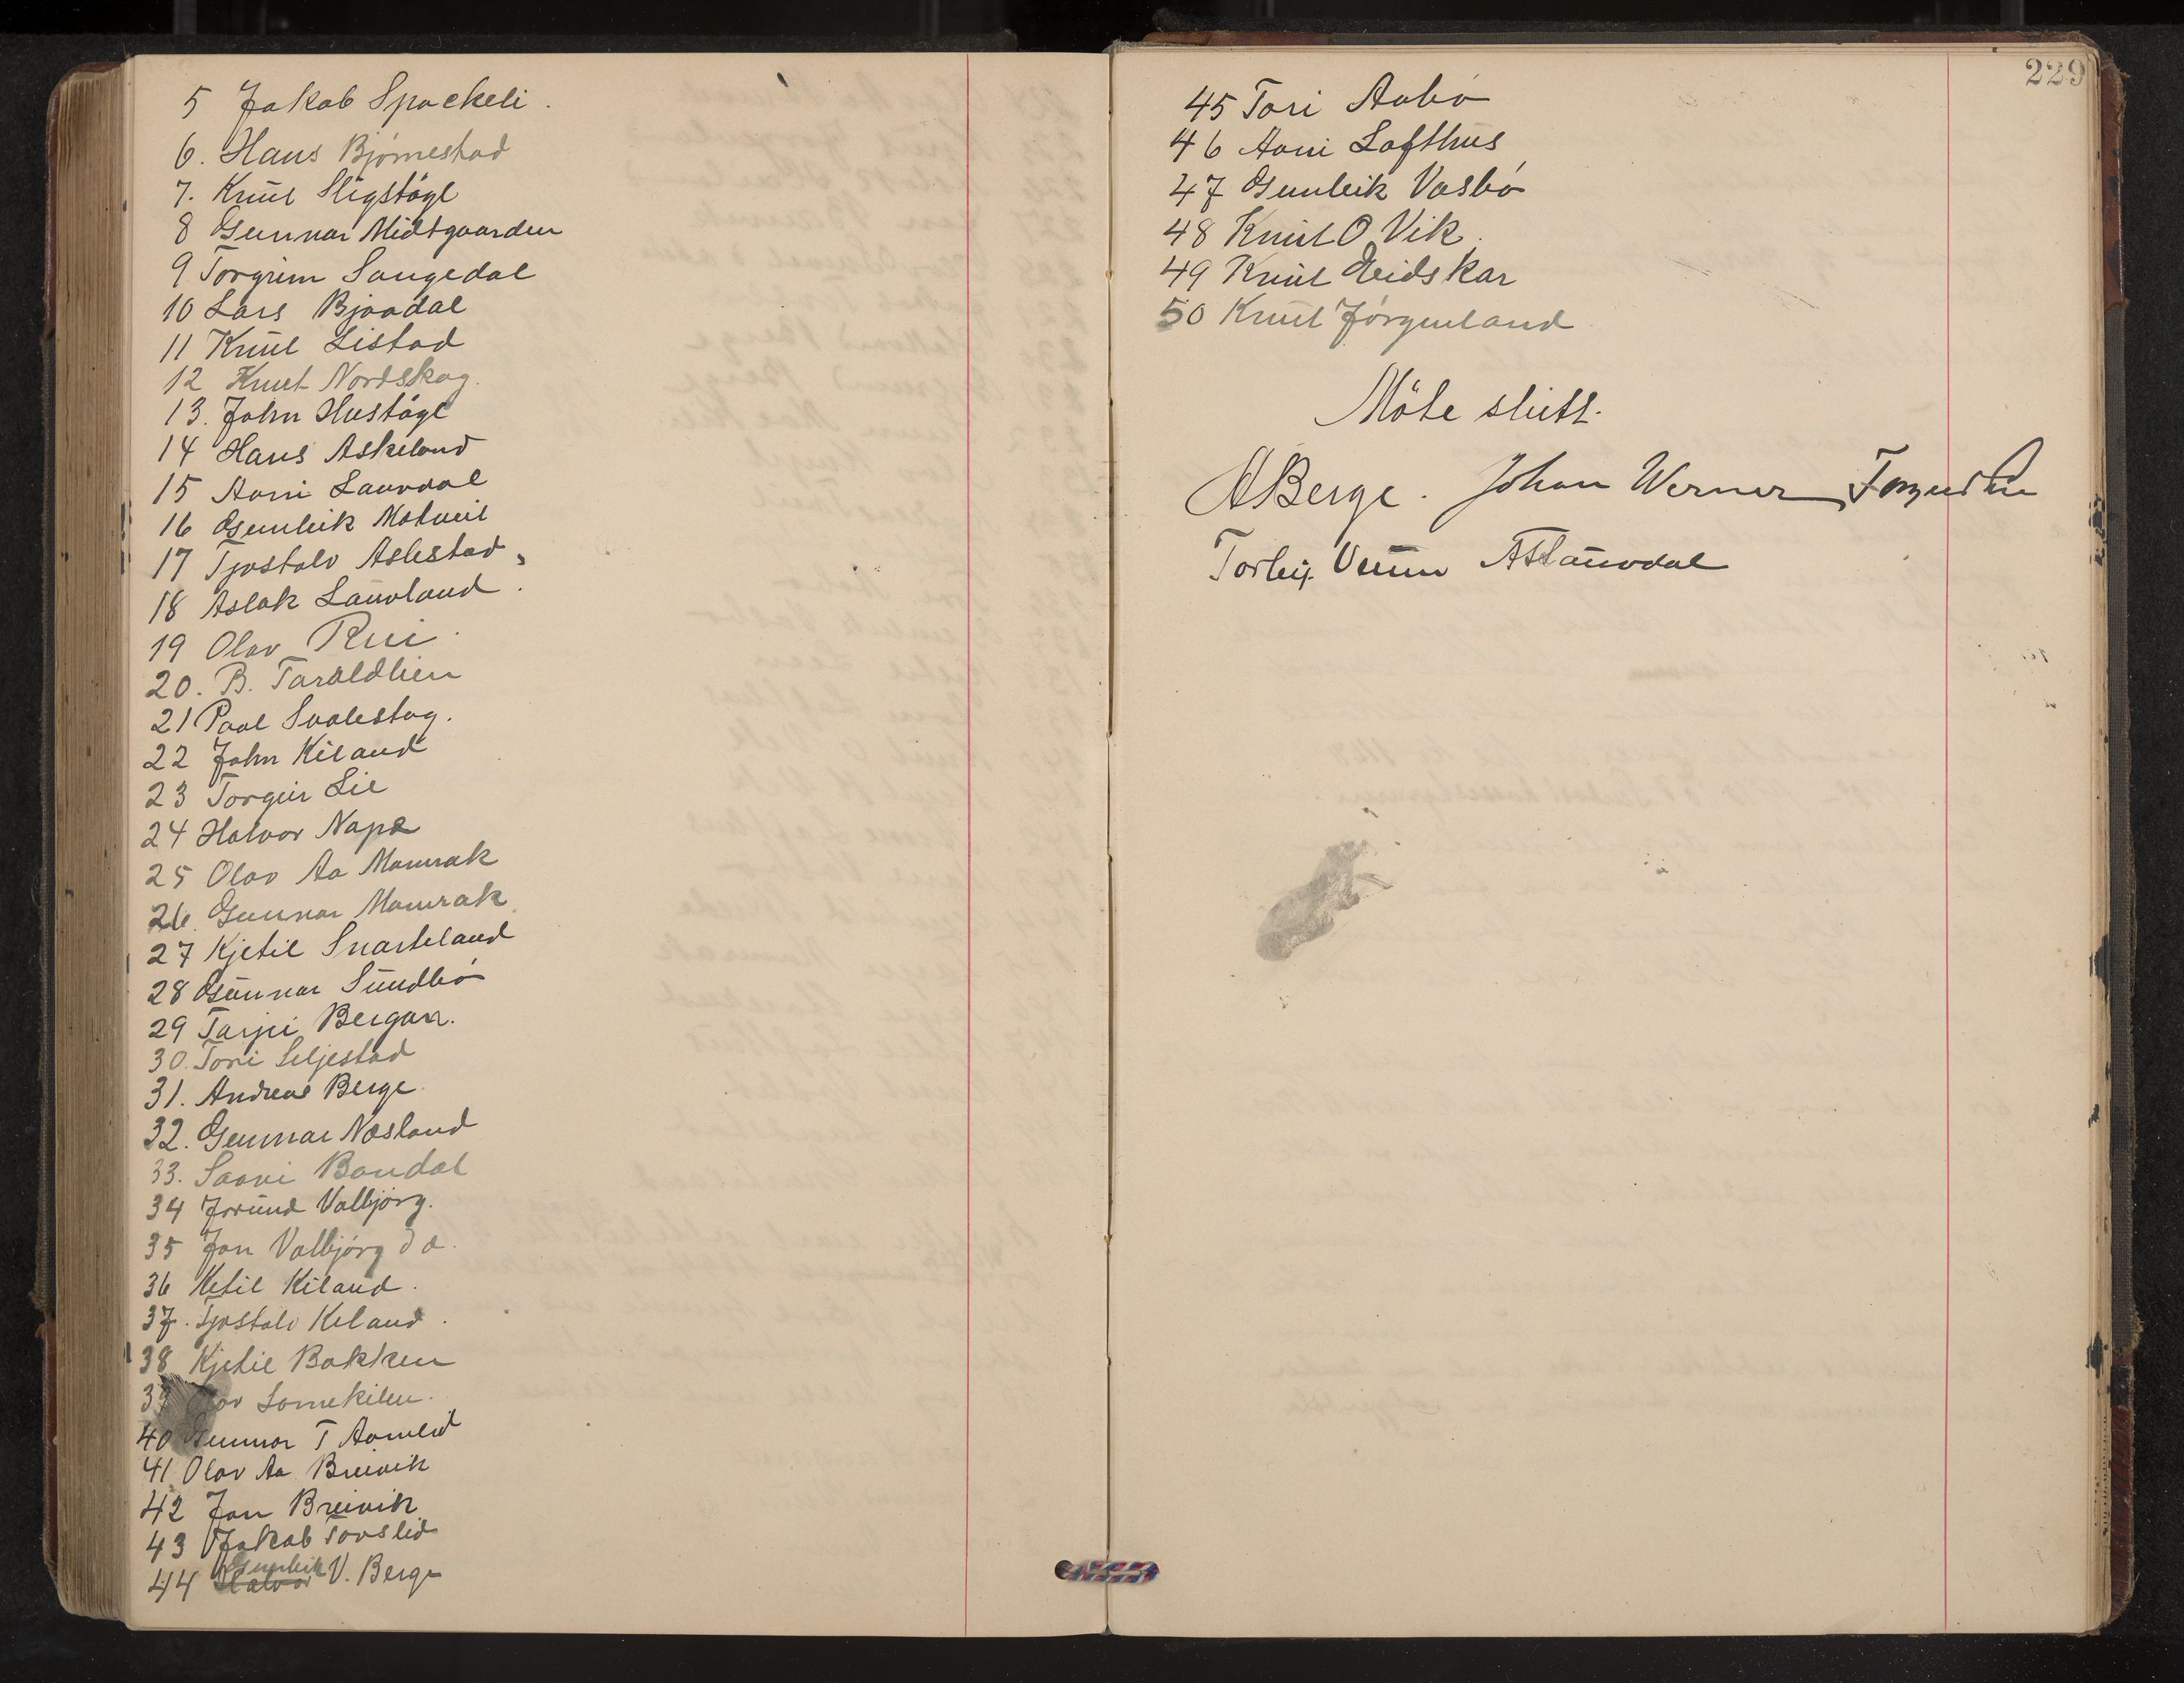 5 Jakob Spockeli.
6. Hans Bjørnestad
7. Knut Stigstøyl
8 Gunnar Midtgaarden
9 Torgrim Songedal
10 Lars Bjaadal
11 Knut Listad
12 Knut Nordskog.
13. John Hustøyl
14 Hans Askeland
15 Aani Lauvdal
16 Gunleik Motveit
17 Tjostolv Aslestad
18 Aslak Lauvland.
19 Olav Rui.
20. B. Taraldlien
21 Paal Svalestog.
22 John Kiland
23 Torgeir Lie
24 Halvor Napa
25 Olav Aa Mannrak
26. Gunnar Mannrak
27 Kjetil Snarteland
28 Gunnar Sundbø
29 Tarjei Bergan.
30. Tori Seljestad
31. Andreas Berge.
32. Gunnar Næsland
33. Saavi Bondal
34 Jorund Valbjørg.
35 Jon Valbjørg d æ.
36 Ketil Kiland.
37. Tjostolv Kiland.
38 Kjetil Bakken
39 Olav Lomekilen.
40 Gunnar T Aamlid
41 Olav Aa. Breivik
42 Jon Breivik
43 Jakob Tovslid
44 Halvor Gunleik V. Berge
229
45 Tori Aabø
46 Aani Lofthus
47 Gunleik Vasbø
48 Knut O Vik.
49 Knut Eidskar
50 Knut Jørgenland
Møte slutt.
A Berge. Johan Werner
Torleif Veum A T Lauvdal